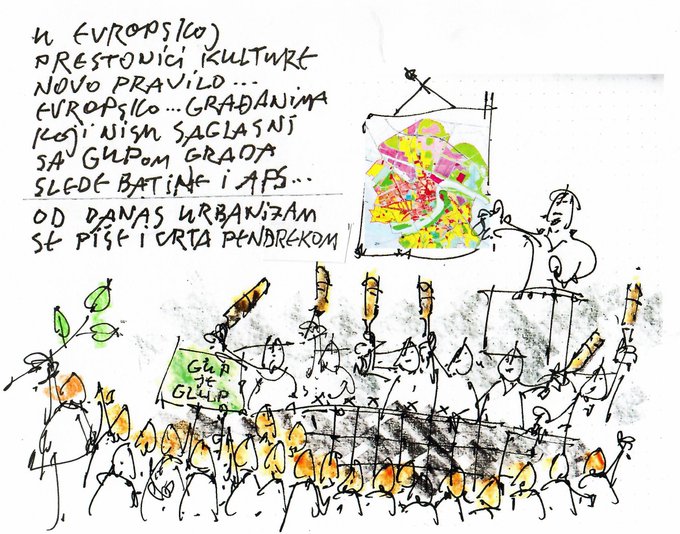 U EVROPSKOJ
PRESTONICI KULTURE
NOVO PRAVILO...
EVROPSKO... GRAĐANIMA
KOJI NISU SAGLASNI
SA GUPOM GRADA
SLEDE BATINE I APS...
OD DANAS URBANIZAM
SE PIŠE I CRTA PENDREKOM
GUP
JE
GLUP